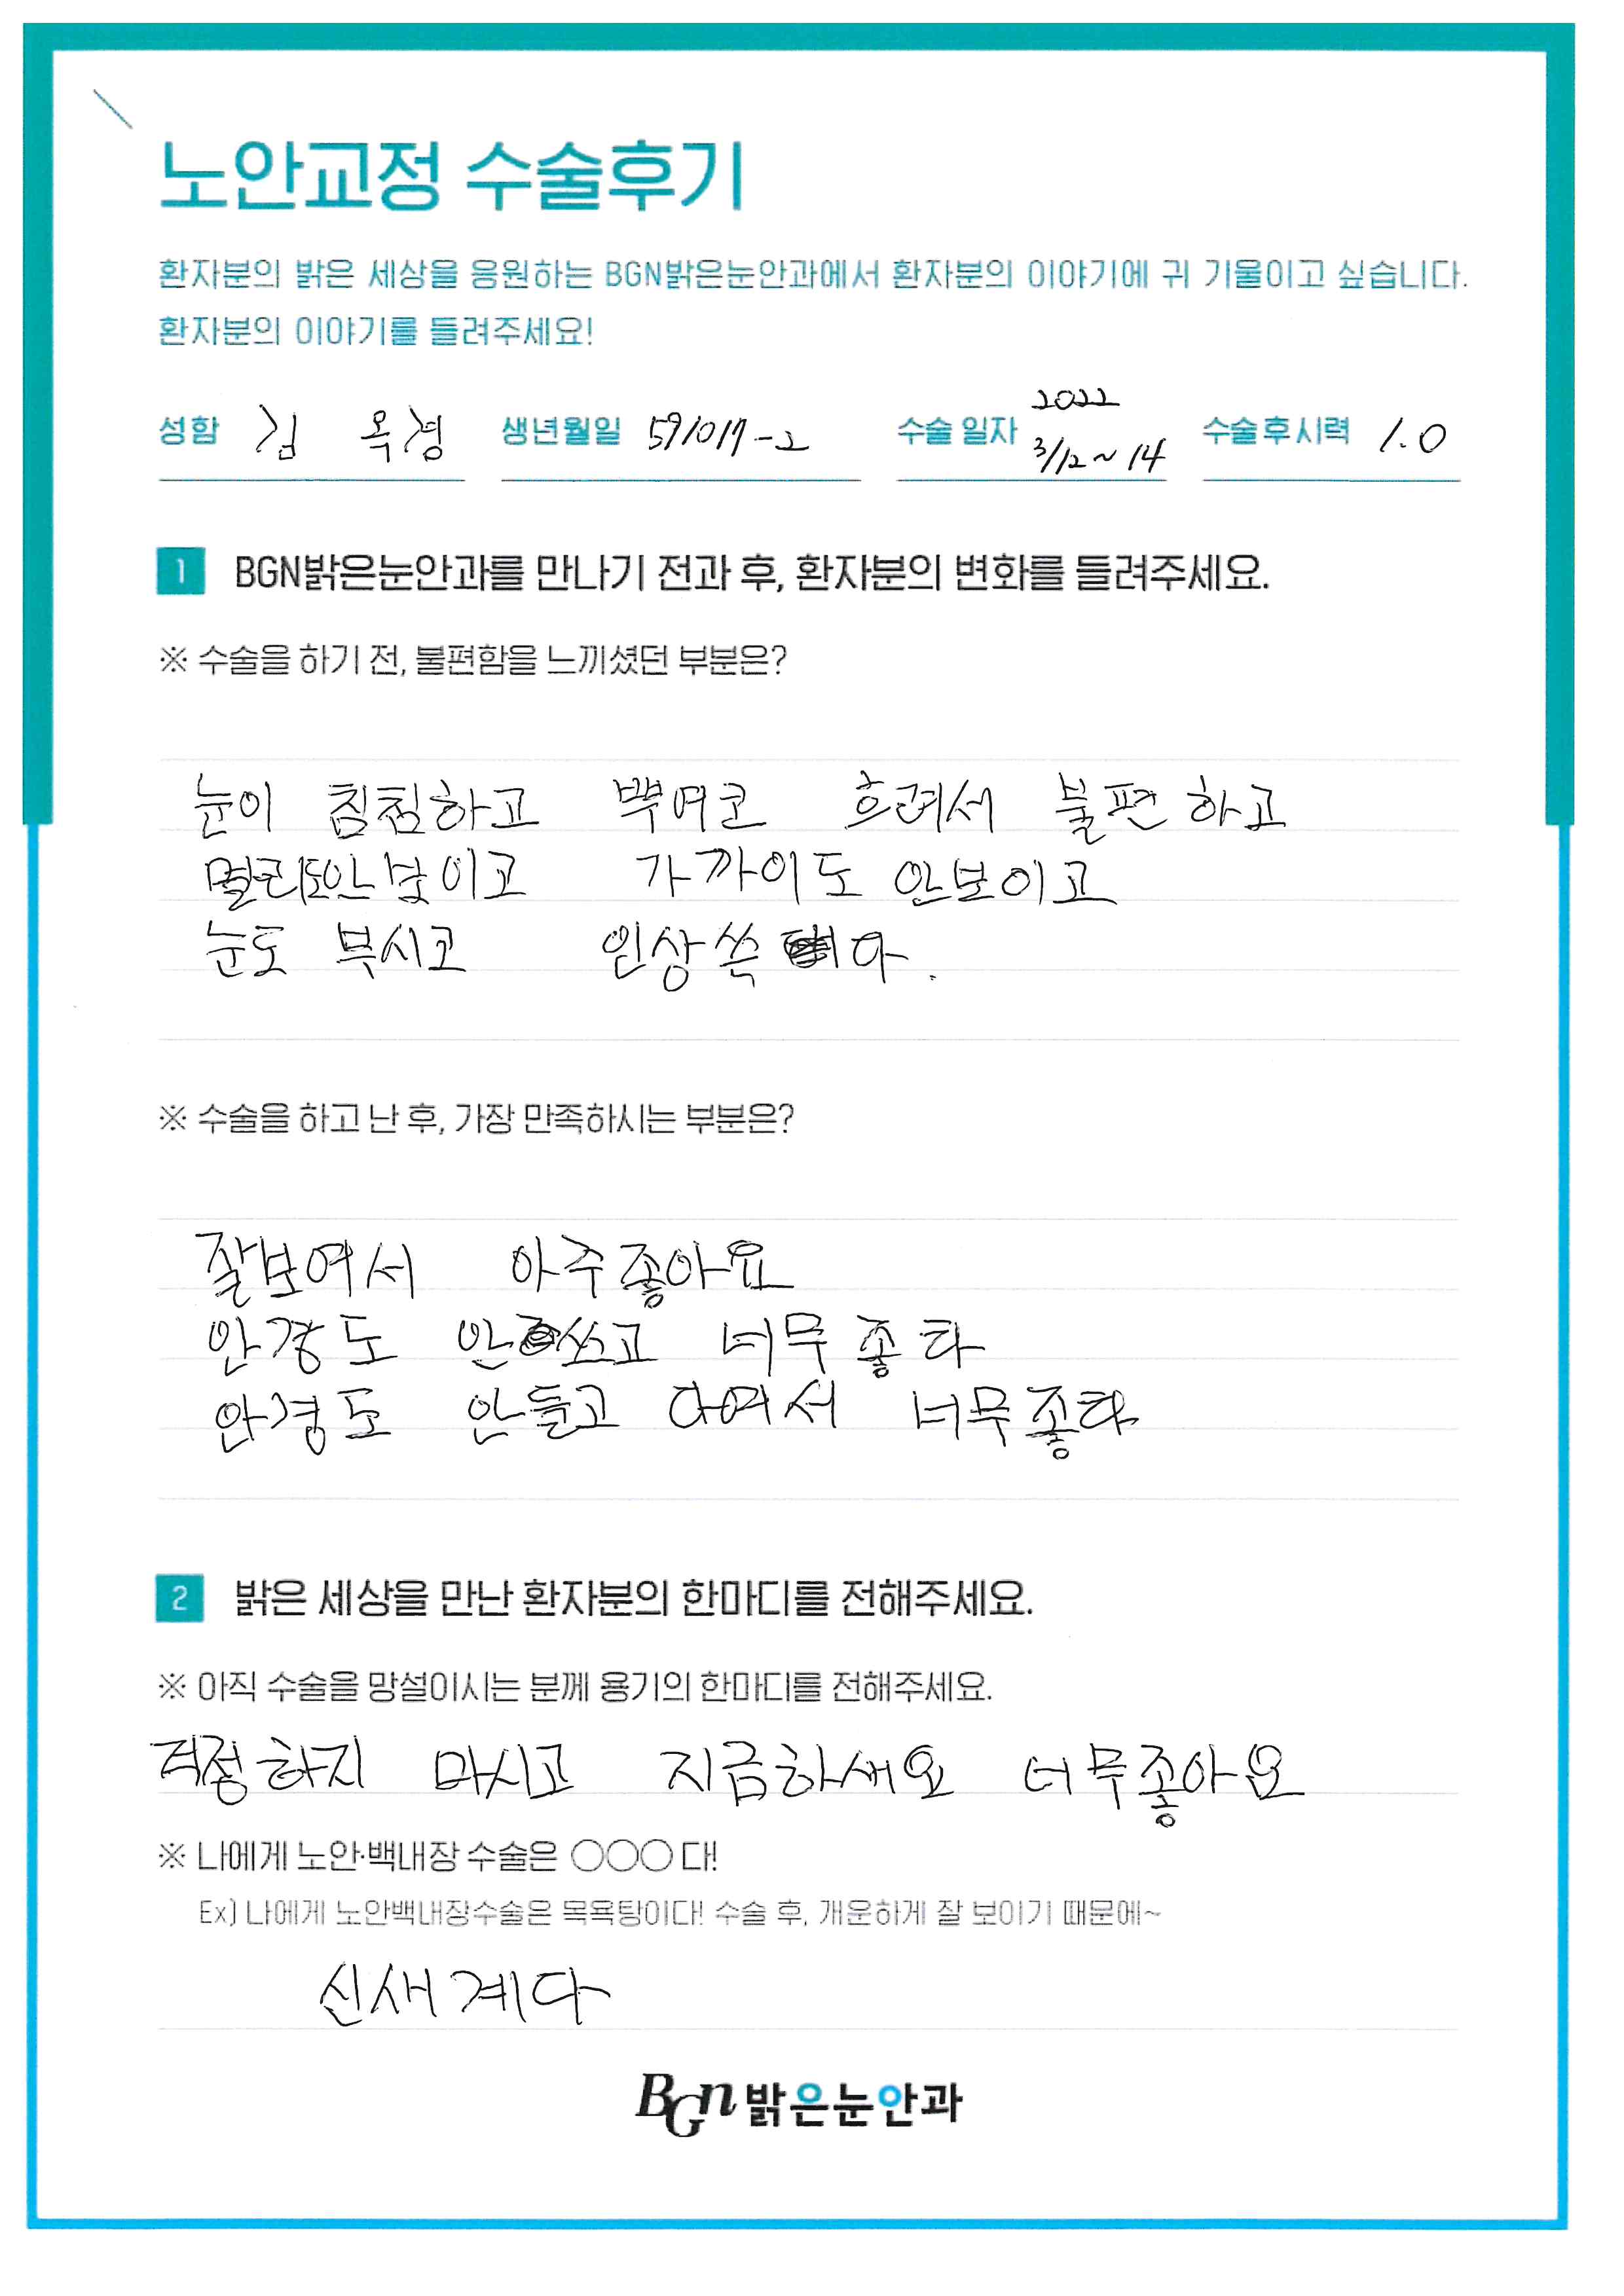 노안교정 수술후기
환자분의 밝은 세상을 응원하는 BGN밝은눈안과에서 환자분의 이야기에 귀 기울이고 싶습니다.
환자분의 이야기를 들려주세요!
성함 김 옥경 생년월일 591017-2 수술 일자 2022 3/12~14 수술 후 시력 1.0
1 BGN밝은눈안과를 만나기 전과 후, 환자분의 변화를 들려주세요.
※ 수술을 하기 전, 불편함을 느끼셨던 부분은?
눈이 침침하고 뿌여코 흐려서 불편하고
멀리도안보이고 가까이도 안보이고
눈도 부시고 인상쓴다.
※ 수술을 하고 난 후, 가장 만족하시는 부분은?
잘보여서 아주좋아요
안경도 안쓰고 너무 좋타
안경도 안들고 다여서 너무좋타
2 밝은 세상을 만난 환자분의 한마디를 전해주세요.
※ 아직 수술을 망설이시는 분께 용기의 한마디를 전해주세요.
걱정하지 마시고 지금하새요 너무좋아요
※ 나에게 노안·백내장 수술은 ○○○다!
Ex) 나에게 노안백내장수술은 목욕탕이다! 수술 후, 개운하게 잘 보이기 때문에~
신새계다
BGN 밝은눈안과